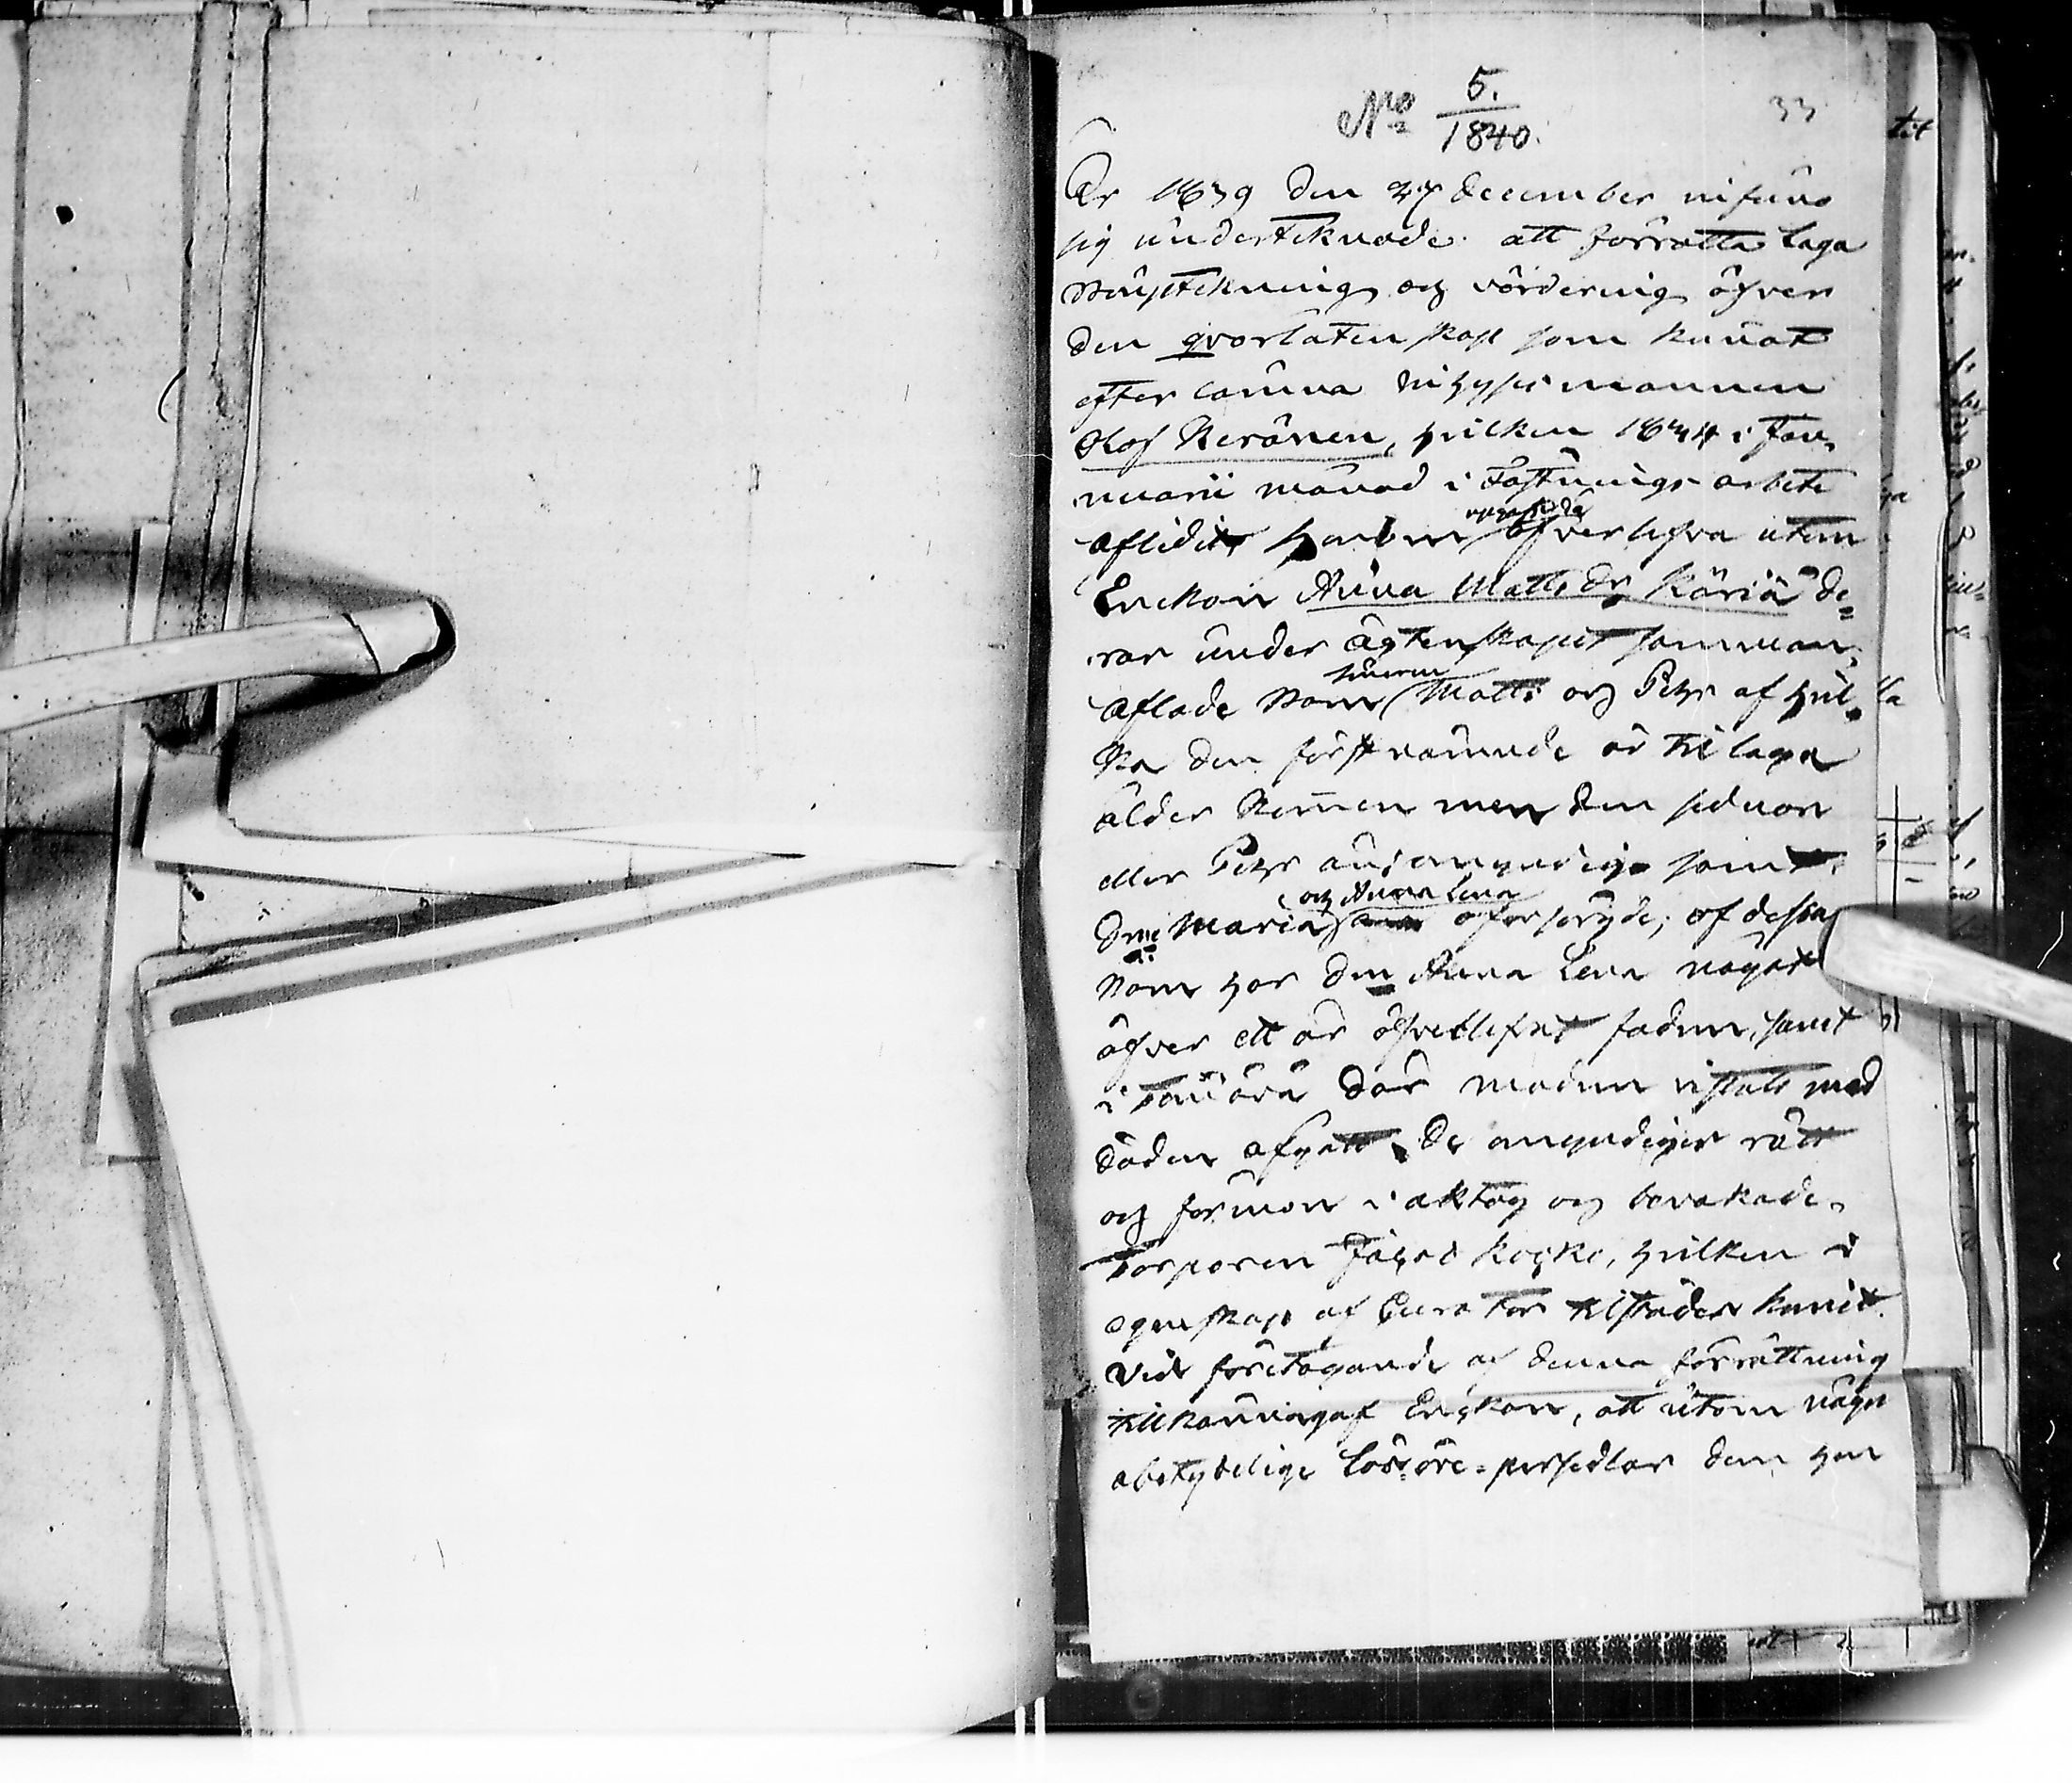 No 5./1840.
33
År 1839 den 27 december infann
sig underteknade att förrätta Laga
Bouptekning och värdering öfver
den qvarlåtenskap som kunnat
efter lämna Inhysesmannen
Olof Keränen, hvilken 1834 i Jan-
nuarii månad i Fästnings arbete
afliditt, honom öfverlefva utom
Enckan Anna Matts dr Käriä de-
ras under ägtenskapet samman-
aflade Barn sönerne Matts och Pehr af hvil-
ka den förstnämnde är till laga
ålder kommen men den sednare
eller Pehr ännu omyndig samt
Maria och Anna Lena oförsörgde; af dessa
Barn har den Anna Lena något
öfver ett år öfverlefvat fadren, samt
i där modren vistats med
döden afgått. De omyndigas rätt
och förmon i akttog och bevakade
Torparen Koski, hvilken i
egenskap af Curator tillstädes kommit.
Vid företagande af denna förrättning
tillkännagaf Enckan, att utom några
obetydelige Lösöre-persedlar dem hon